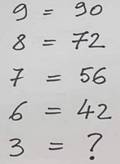 9 = 90
8 = 72
7 = 56
6 = 42
3 = ?